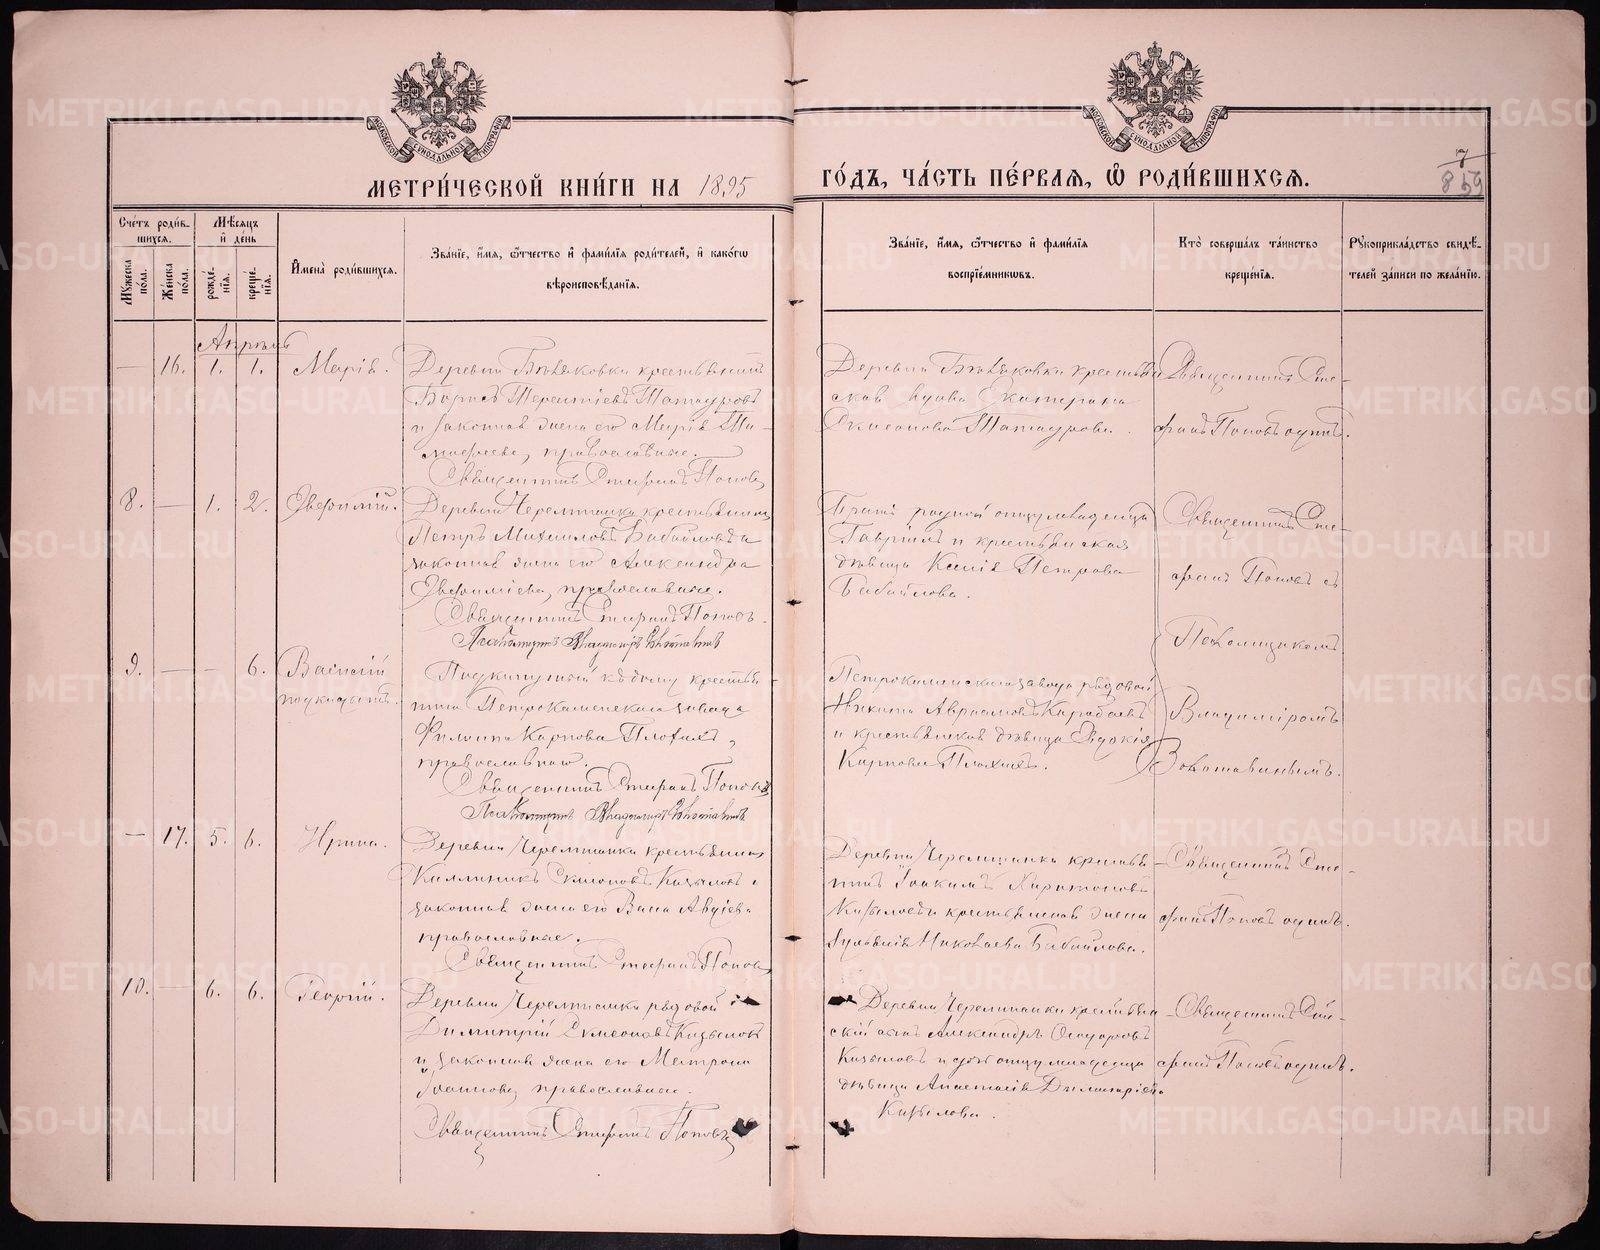 МОСКОВСКОЙ СѴНОДАЛЬНОЙ ТИПОГРАФІИ
МОСКОВСКОЙ СѴНОДАЛЬНОЙ ТИПОГРАФІИ
МЕТРИ́ЧЕСКОЙ КНИ́ГИ НА 1895
ГО́ДЪ, ЧА́СТЬ ПЕ́РВАЯ, Ѡ҆ РОДИ́ВШИХСЯ.
7
859
Сче́тъ роди́в-
шихся.
Мѣ́сяцъ
и҆ де́нь
Мꙋжеска по́ла.
Же́нска по́ла.
рожде́-нїя.
креще́-нїя.
И҆мена̀ роди́вшихся.
Зва́нїе, и҆́мя, ѻ҆́тчество и҆ фами́лїя роди́телей, и҆ како́гѡ
вѣроисповѣ́данїя.
Зва́нїе, и҆́мя, ѻ҆́тчество и҆ фами́лїя
воспрїе́мникѡвъ.
Кто̀ соверша́лъ та́инство
креще́нїя.
Рꙋкоприкла́дство свидѣ́-
телей за́писи по жела́нїю.
Апрѣль
— 16. 1. 1. Марія.
Деревни Бѣляковки крестьянинъ
Борисъ Терентіевъ Татауровъ
и законная жена его Марія Ти-
мофеева, православные.
Священникъ Стефанъ Поповъ
Деревни Бѣляковки крестьян
ская вдова Екатерина
Симеонова Татаурова.
Священникъ Сте-
фанъ Поповъ одинъ.
8. — 1. 2. Евфимій.
Деревни Черемшанки крестьянинъ
Петръ Михаиловъ Бабайловъ и
законная жена его Александра
Евфиміева, православные.
Священникъ Стефанъ Поповъ.
Псаломщикъ Владиміръ
Братъ родной отцу младенца
Гавріилъ и крестьянская
дѣвица Ксенія Петрова
Бабайлова.
Священникъ Сте-
фанъ Поповъ съ
Псаломщикомъ
Владиміромъ
9. — — 6. Василій
подкидышъ.
Подкинутый къ дому крестья-
нина Петрокаменскаго завода
Филиппа Карпова Плохихъ,
православнаго.
Священникъ Стефанъ Поповъ
Псаломщикъ Владиміръ
Петрокаменскаго завода рядовой
Никита Авраамовъ Карабаевъ
и крестьянская дѣвица Евдокія
Карпова Плохихъ.
— 17. 5. 6. Ирина.
Деревни Черемшанки крестьянинъ
Каллиникъ Симеоновъ Кизиловъ и
законная жена его Васса Авдіева
православные.
Священникъ Стефанъ Поповъ
Деревни Черемшанки крестья-
нинъ Іоакимъ Харитоновъ
Кизиловъ и крестьянская жена
Іуліанія Николаева Бабайлова.
Священникъ Сте-
фанъ Поповъ одинъ.
10. — 6. 6. Георгій.
Деревни Черемшанки рядовой
Димитрій Симеоновъ Кизиловъ
и законная жена его Матрона
Іоаннова, православные.
Священникъ Стефанъ Поповъ
Деревни Черемшанки крестьян-
скій сынъ Александръ Ѳеодоровъ
Кизиловъ и дочь отцу младенца
дѣвица Анастасія Димитріева
Кизилова.
Священникъ Сте-
фанъ Поповъ одинъ.
METRIKI.GASO-URAL.RU